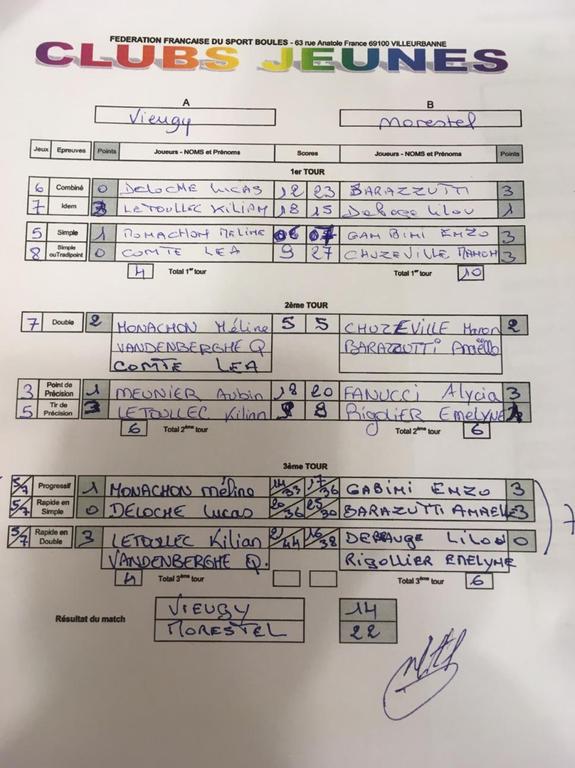 FEDERATION FRANCAISE DU SPORT BOULES - 63 rue Anatole France 69100 VILLEURBANNE
CLUBS JEUNES
A B
Vieugy Morestel
Jeux Epreuves Points Joueurs - NOMS et Prénoms Scores Joueurs - NOMS et Prénoms Points
1er TOUR
6 Combiné 0 DELOCHE LUCAS 12 23 BARAZZUTTI 3
7 Idem 3 LETOULLEC KILIAN 18 15 Lilou 1
5 Simple 1 MONACHON MELINE 06 07 GAMBIMI ENZO 3
8 Simple ouTradipoint 0 COMTE LEA 9 27 CHUZEVILLE MANON 3
4 Total 1er tour Total 1er tour 10
2ème TOUR
7 Double 2 MONACHON Méline 5 5 CHUZEVILLE Manon 2
VANDENBERGHE Q BARAZZUTTI Amaëlle
COMTE LEA
3 Point de Précision 1 MEUNIER Aubin 18 20 FANUCCI Alycia 3
5 Tir de Précision 3 LETOULLEC Kilian 8 RigolIER EMELYNE
6 Total 2ème tour Total 2ème tour 6
3ème TOUR
5/7 Progressif 1 MONACHON méline /33 17/36 GABIMI ENZO 3
5/7 Rapide en Simple 0 DELOCHE Lucas 20/36 25/30 BARAZUTTI AMAELLE 3
5/7 Rapide en Double 3 LETOULLEC Kilian /44 16/38 DEBAUGE LILOU 0
VANDENBERGHE Q. Rigollier EMELYNE
4 Total 3ème tour Total 3ème tour 6
7
Résultat du match VIEUGY 14
MORESTEL 22